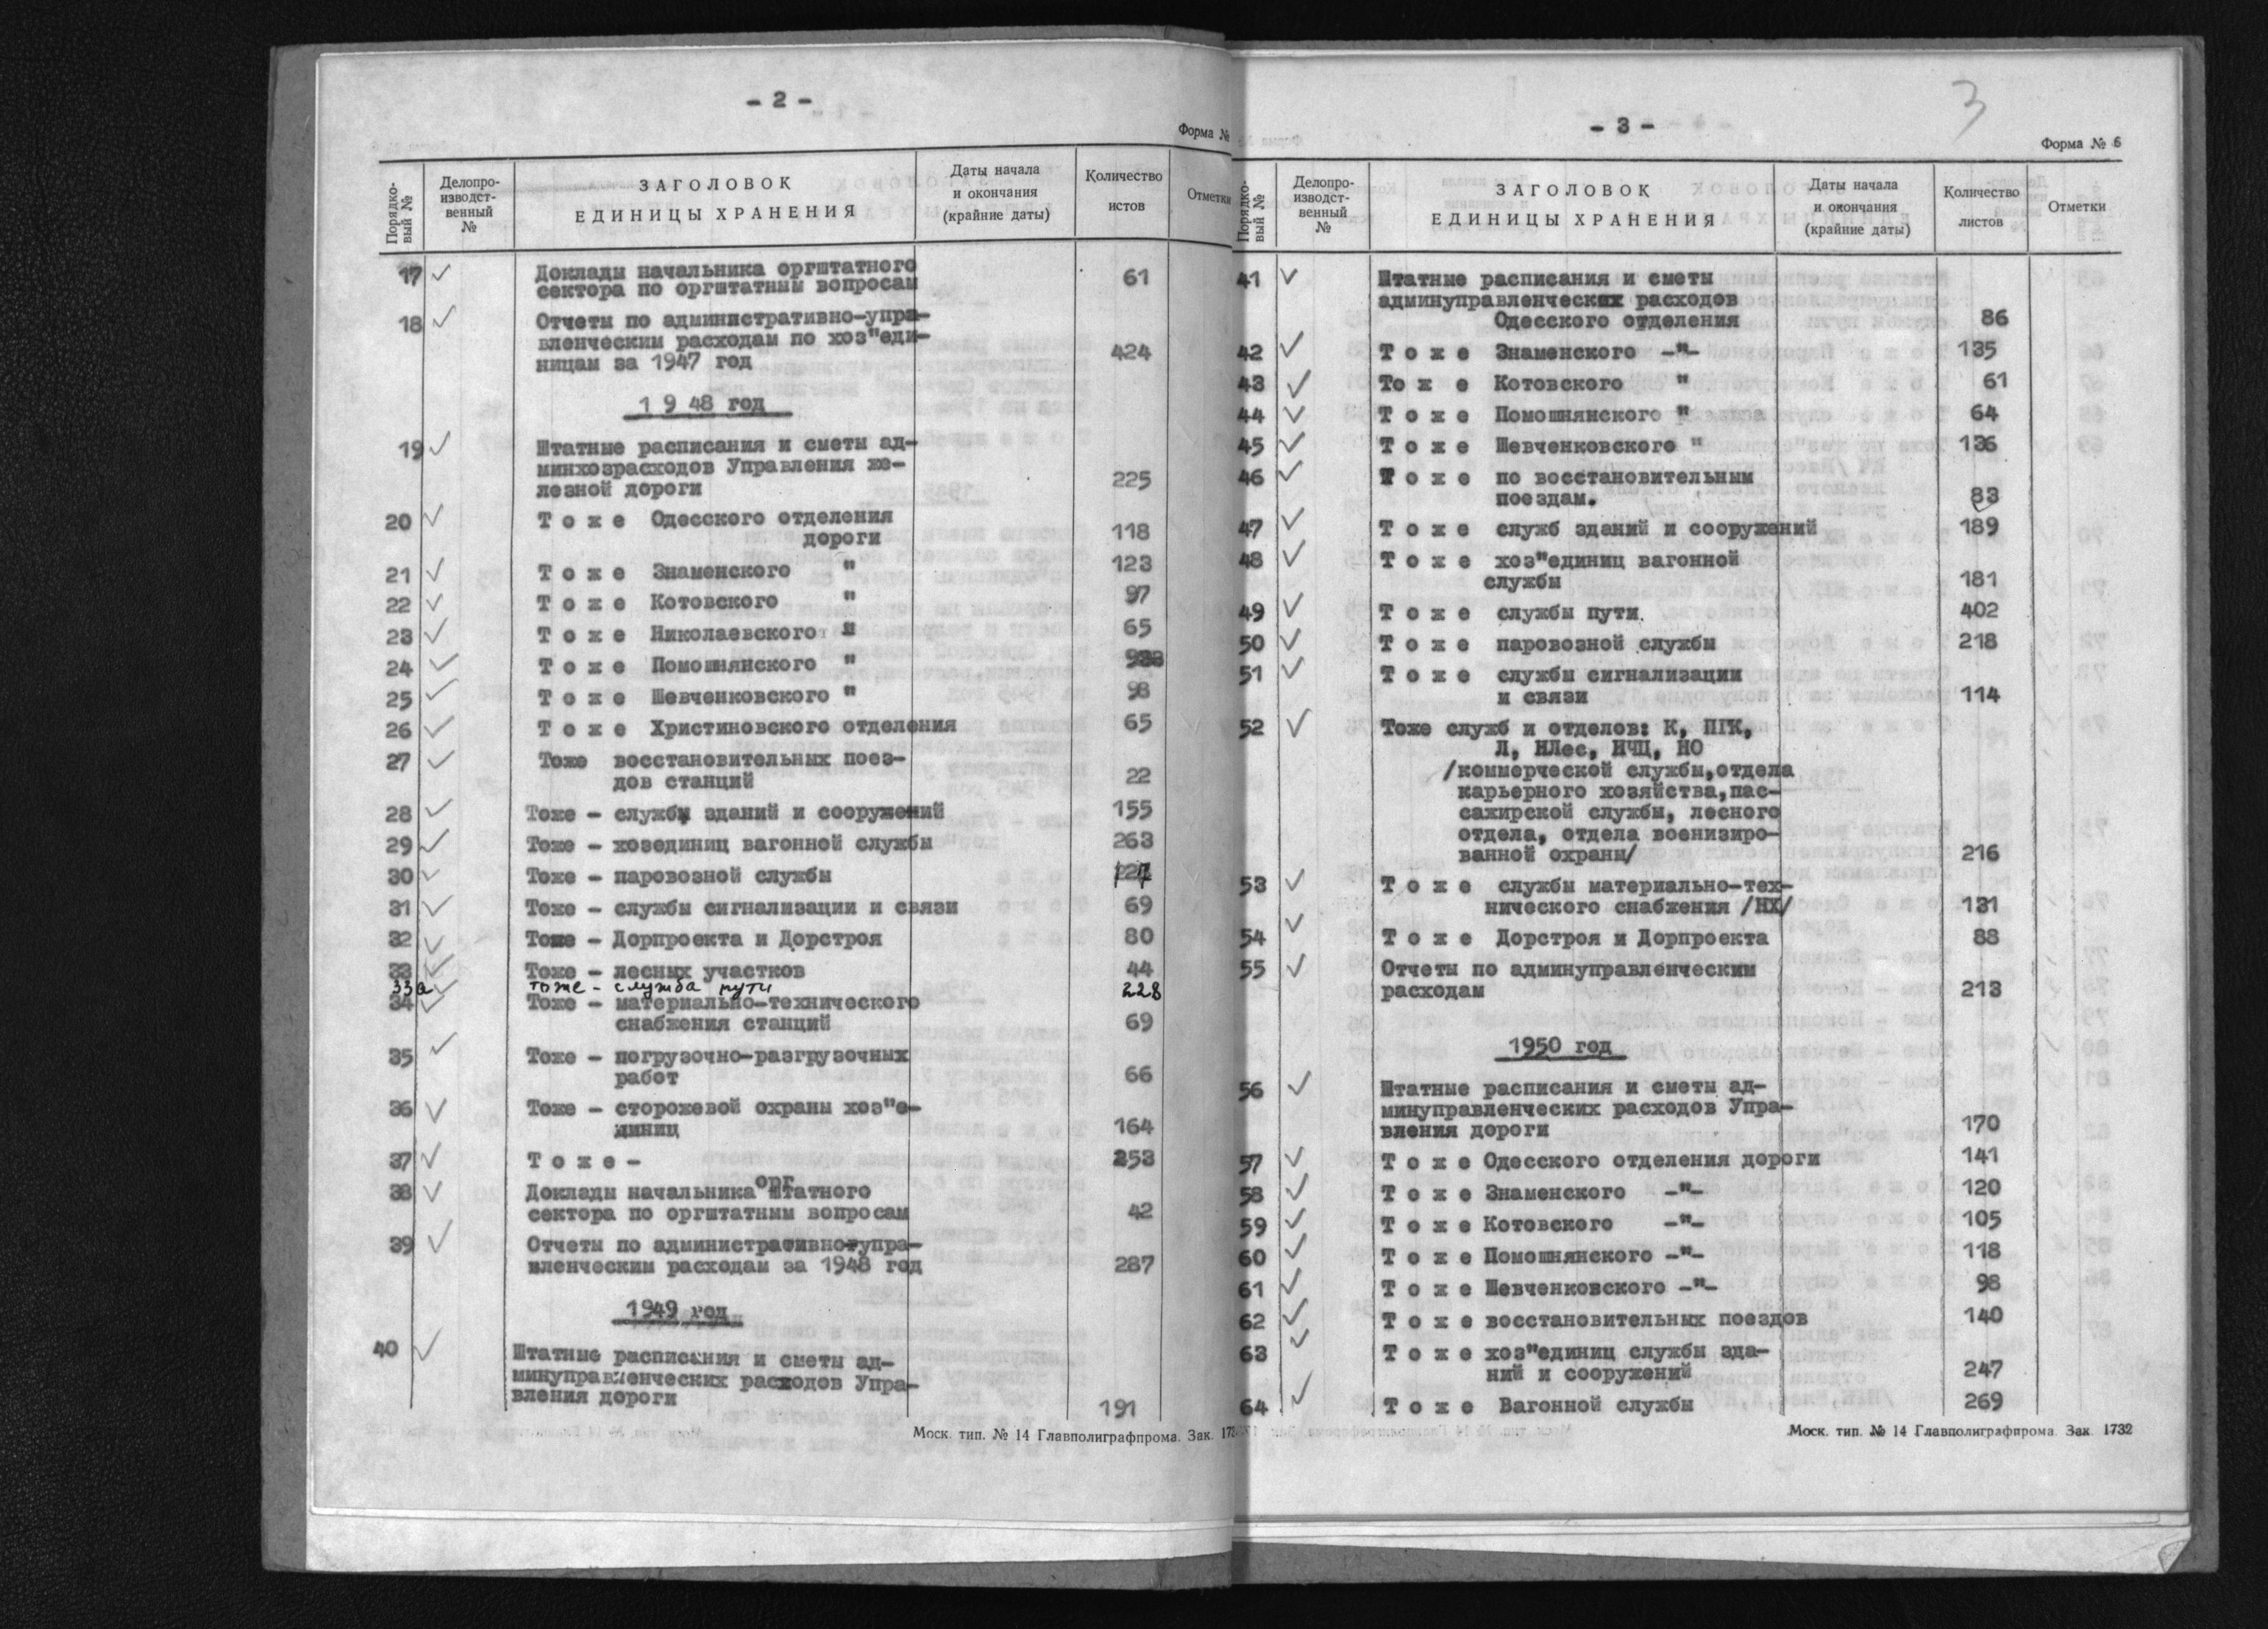 - 2 -
Форма №
Порядко-
вый №
Делопро-
изводст-
венный
№
ЗАГОЛОВОК
ЕДИНИЦЫ ХРАНЕНИЯ
Даты начала
и окончания
(крайние даты)
Количество
истов
Отметки
17 Доклады начальника оргштатного
сектора по оргштатным вопросам 61
18 Отчеты по административно-упра-
вленческим расходам по хоз"еди-
ницам за 1947 год 424
1 9 48 год
19 Штатные расписания и сметы ад-
минхозрасходов Управления же-
лезной дороги 225
20 Т о ж е Одесского отделения
дороги 118
21 Т о ж е Знаменского " 123
22 Т о ж е Котовского " 97
23 Т о ж е Николаевского " 65
24 Т о ж е Помошнянского "
25 Т о ж е Шевченковского " 98
26 Т о ж е Христиновского отделения 65
27 Тоже восстановительных поез-
дов станций 22
28 Тоже - службы зданий и сооружений 155
29 Тоже - хозединиц вагонной службы 263
30 Тоже - паровозной службы
31 Тоже - службы сигнализации и связи 69
32 Тоже - Дорпроекта и Дорстроя 80
33 Тоже - лесных участков 44
33а тоже - служба пути 228
34 Тоже - материально-технического
снабжения станций 69
35 Тоже - погрузочно-разгрузочных
работ 66
36 Тоже - сторожевой охраны хоз"е-
диниц 164
37 Т о ж е - 253
38 Доклады начальника оргштатного
сектора по оргштатным вопросам 42
39 Отчеты по административно-упра-
вленческим расходам за 1948 год 287
1949 год
40 Штатные расписания и сметы ад-
минуправленческих расходов Упра-
вления дороги 191
Моск. тип. № 14 Главполиграфпрома. Зак. 173
3
- 3 -
Форма № 6
Порядко-
вый №
Делопро-
изводст-
венный
№
ЗАГОЛОВОК
ЕДИНИЦЫ ХРАНЕНИЯ
Даты начала
и окончания
(крайние даты)
Количество
листов
Отметки
41 Штатные расписания и сметы
админуправленческих расходов
Одесского отделения 86
42 Т о ж е Знаменского -"- 135
43 То ж е Котовского " 61
44 Т о ж е Помошнянского " 64
45 Т о ж е Шевченковского " 136
46 Т о ж е по восстановительным
поездам. 83
47 Т о ж е служб зданий и сооружений 189
48 Т о ж е хоз"единиц вагонной
службы 181
49 Т о ж е службы пути. 402
50 Т о ж е паровозной службы 218
51 Т о ж е службы сигнализации
и связи 114
52 Тоже служб и отделов: К, ПГК,
Л, НЛес, НЧЦ, НО
/коммерческой службы,отдела
карьерного хозяйства,пас-
сажирской службы, лесного
отдела, отдела военизиро-
ванной охраны/ 216
53 Т о ж е службы материально-тех-
нического снабжения /НХ/ 131
54 Т о ж е Дорстроя и Дорпроекта 88
55 Отчеты по админуправленческим
расходам 213
1950 год
56 Штатные расписания и сметы ад-
минуправленческих расходов Упра-
вления дороги 170
57 Т о ж е Одесского отделения дороги 141
58 Т о ж е Знаменского -"- 120
59 Т о ж е Котовского -"- 105
60 Т о ж е Помошнянского -"- 118
61 Т о ж е Шевченковского -"- 98
62 Т о ж е восстановительных поездов 140
63 Т о ж е хоз"единиц службы зда-
ний и сооружений 247
64 Т о ж е Вагонной службы 269
Моск. тип. № 14 Главполиграфпрома. Зак. 1732